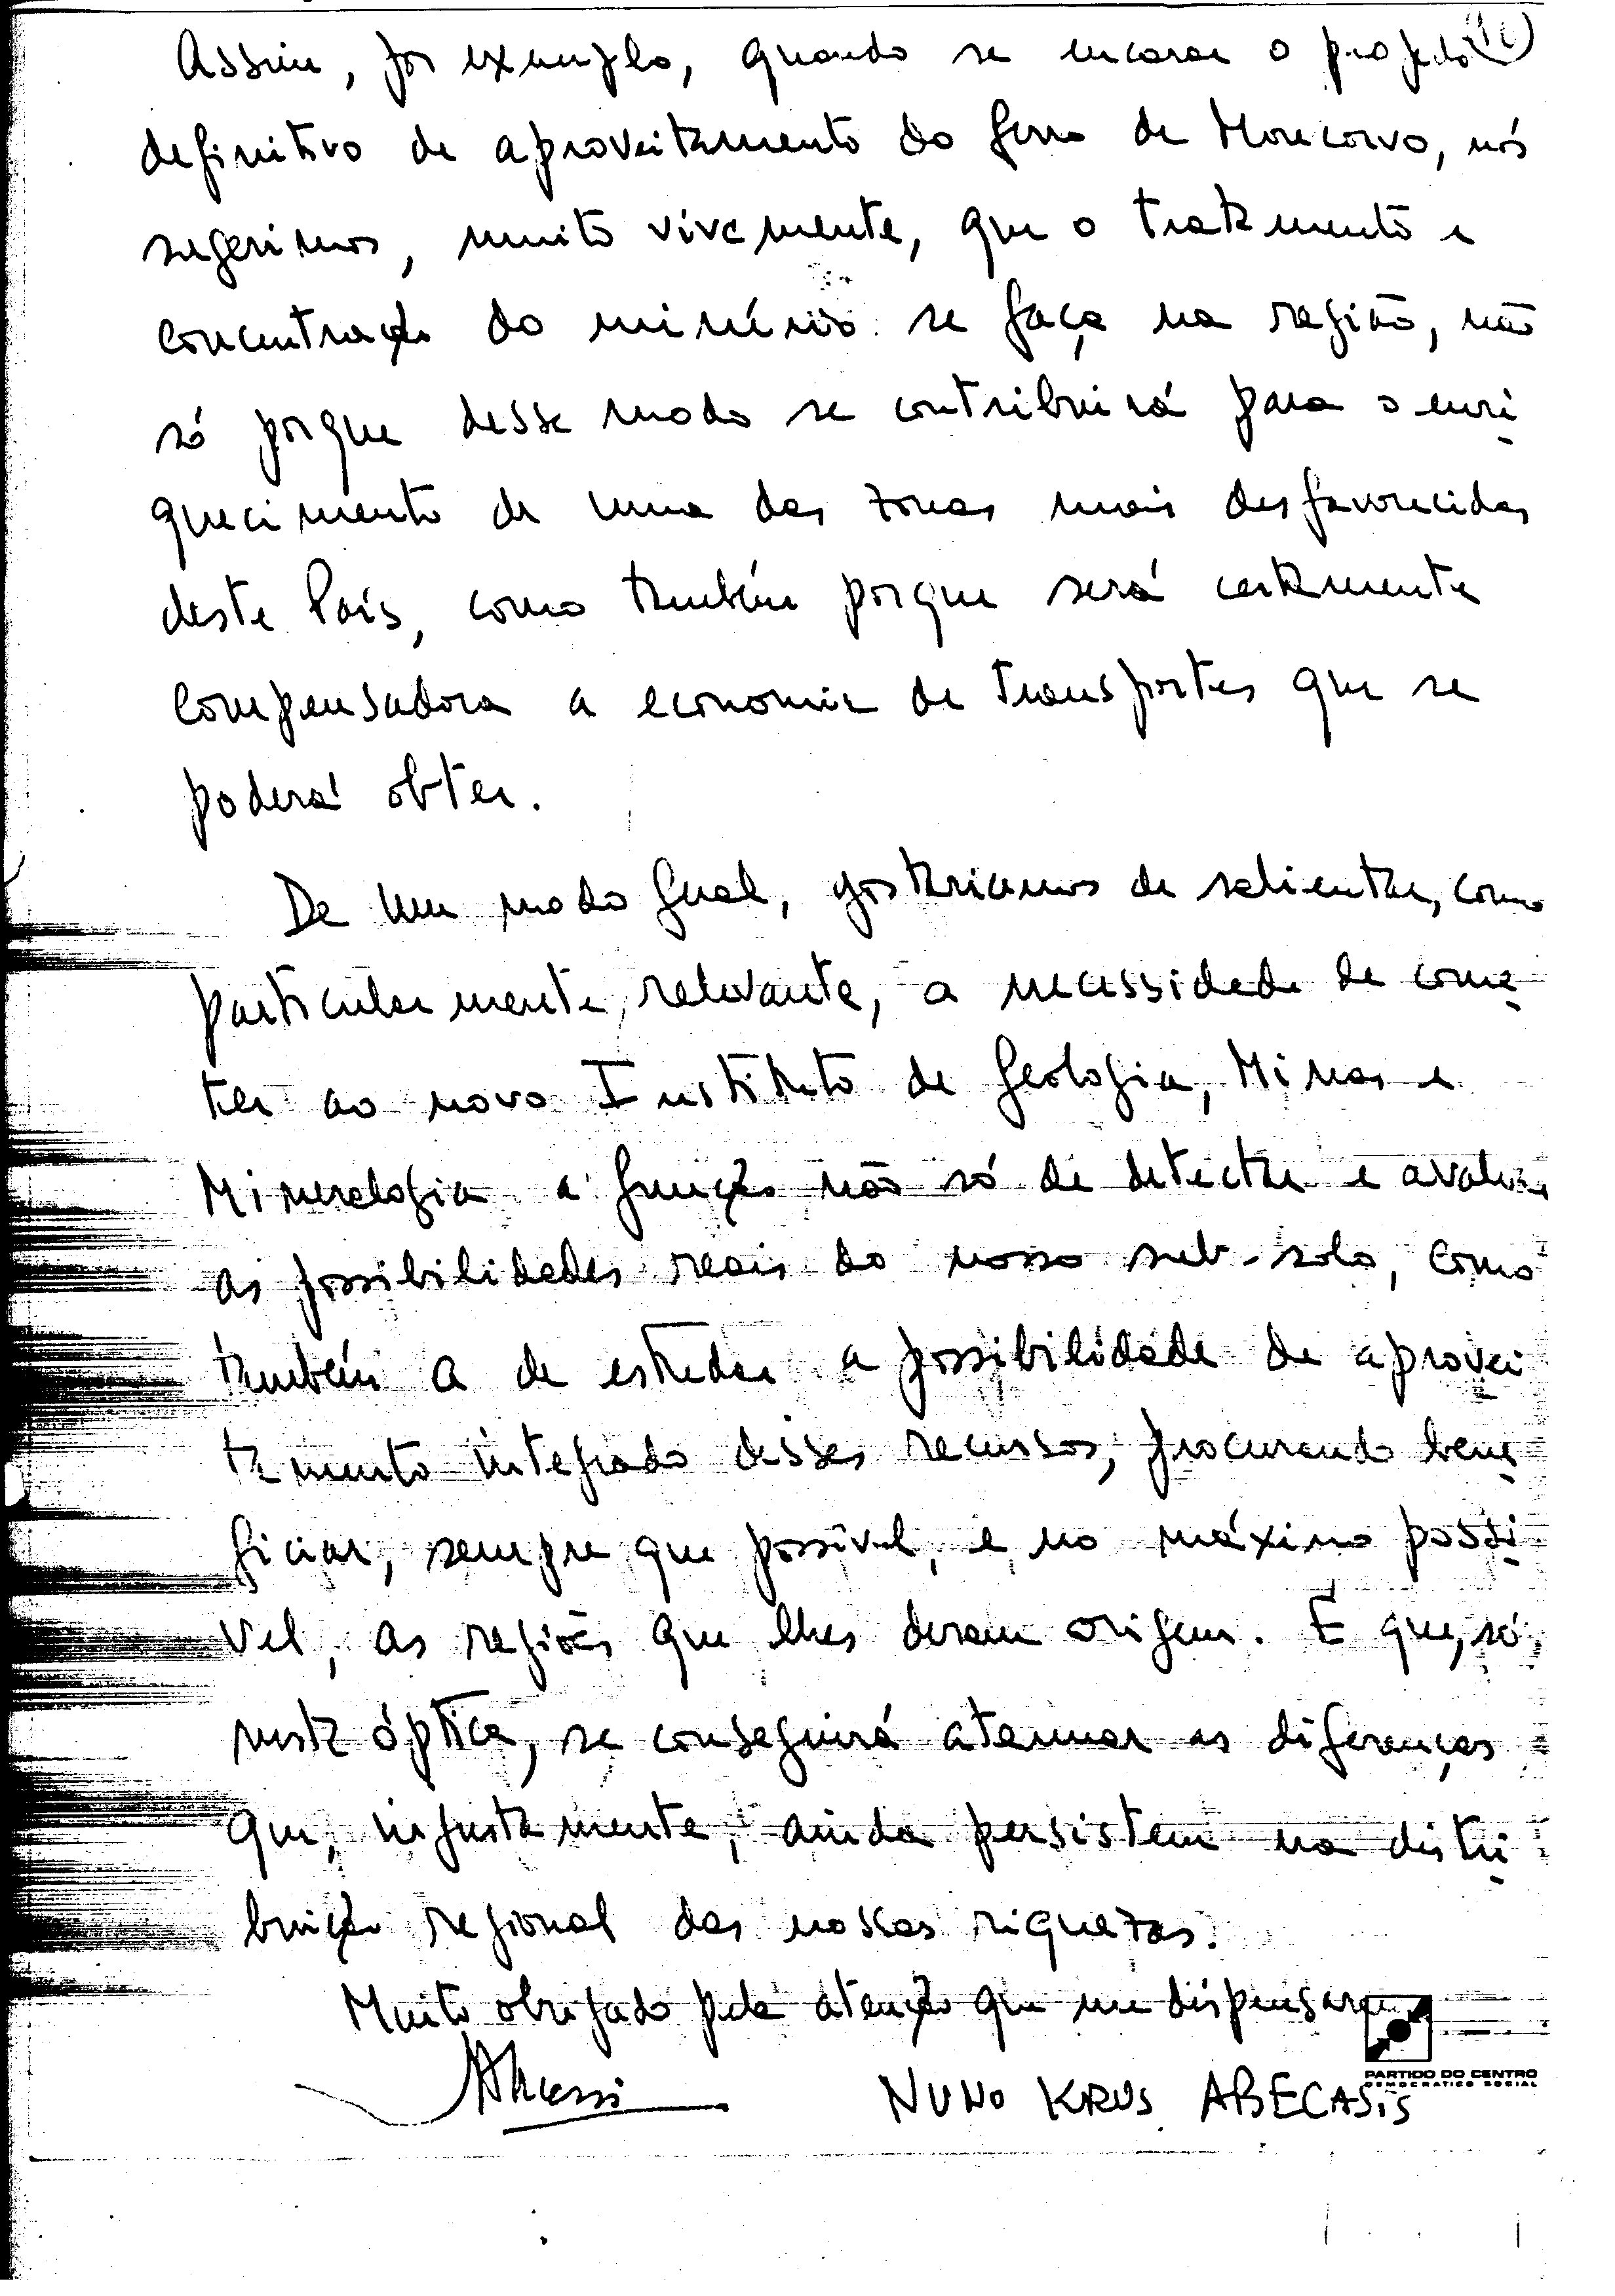 Assim, por exemplo, quando se encarar o projecto
definitivo de aproveitamento do ferro de Moncorvo, nós
sugerimos, muito vivamente, que o tratamento e
concentração do minério se faça na região, não
só porque desse modo se contribuirá para o enri
quecimento de uma das zonas mais desfavorecidas
deste País, como também porque será certamente
compensadora a economia de transportes que se
poderá obter.
De um modo geral, gostaríamos de salientar, como
particularmente relevante, a necessidade de come
ter ao novo Instituto de Geologia, Minas e
Mineralogia a função não só de detectar e avaliar
as possibilidades reais do nosso sub-solo, como
também a de estudar a possibilidade de aprovei
tamento integrado desses recursos, procurando bene
ficiar, sempre que possível, e no máximo possí
vel, as regiões que lhes deram origem. É que, só,
nesta óptica, se conseguirá atenuar as diferenças
que, injustamente, ainda persistem na distri
buição regional das nossas riquezas.
Muito obrigado pela atenção que me dispensaram
PARTIDO DO CENTRO
DEMOCRATICO SOCIAL
NUNO KRUS ABECASIS